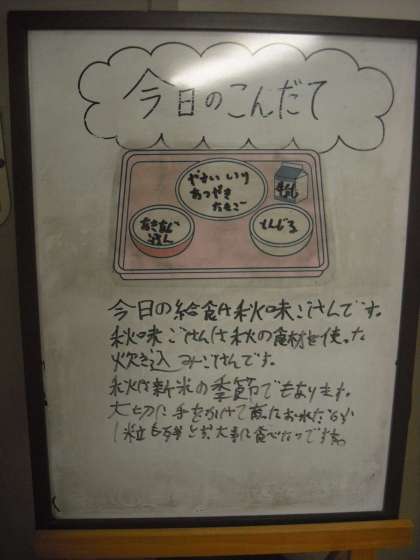 今日のこんだて
やさい いり
あつやき
たまご
牛乳
あきあじ
ごはん
とんじる
今日の給食は秋味ごはんです。
秋味ごはんは秋の食材を使った
炊き込みごはんです。
秋は新米の季節でもあります。
大切に手をかけて育てたお米だから
1粒も残さず大事に食べたいですね。